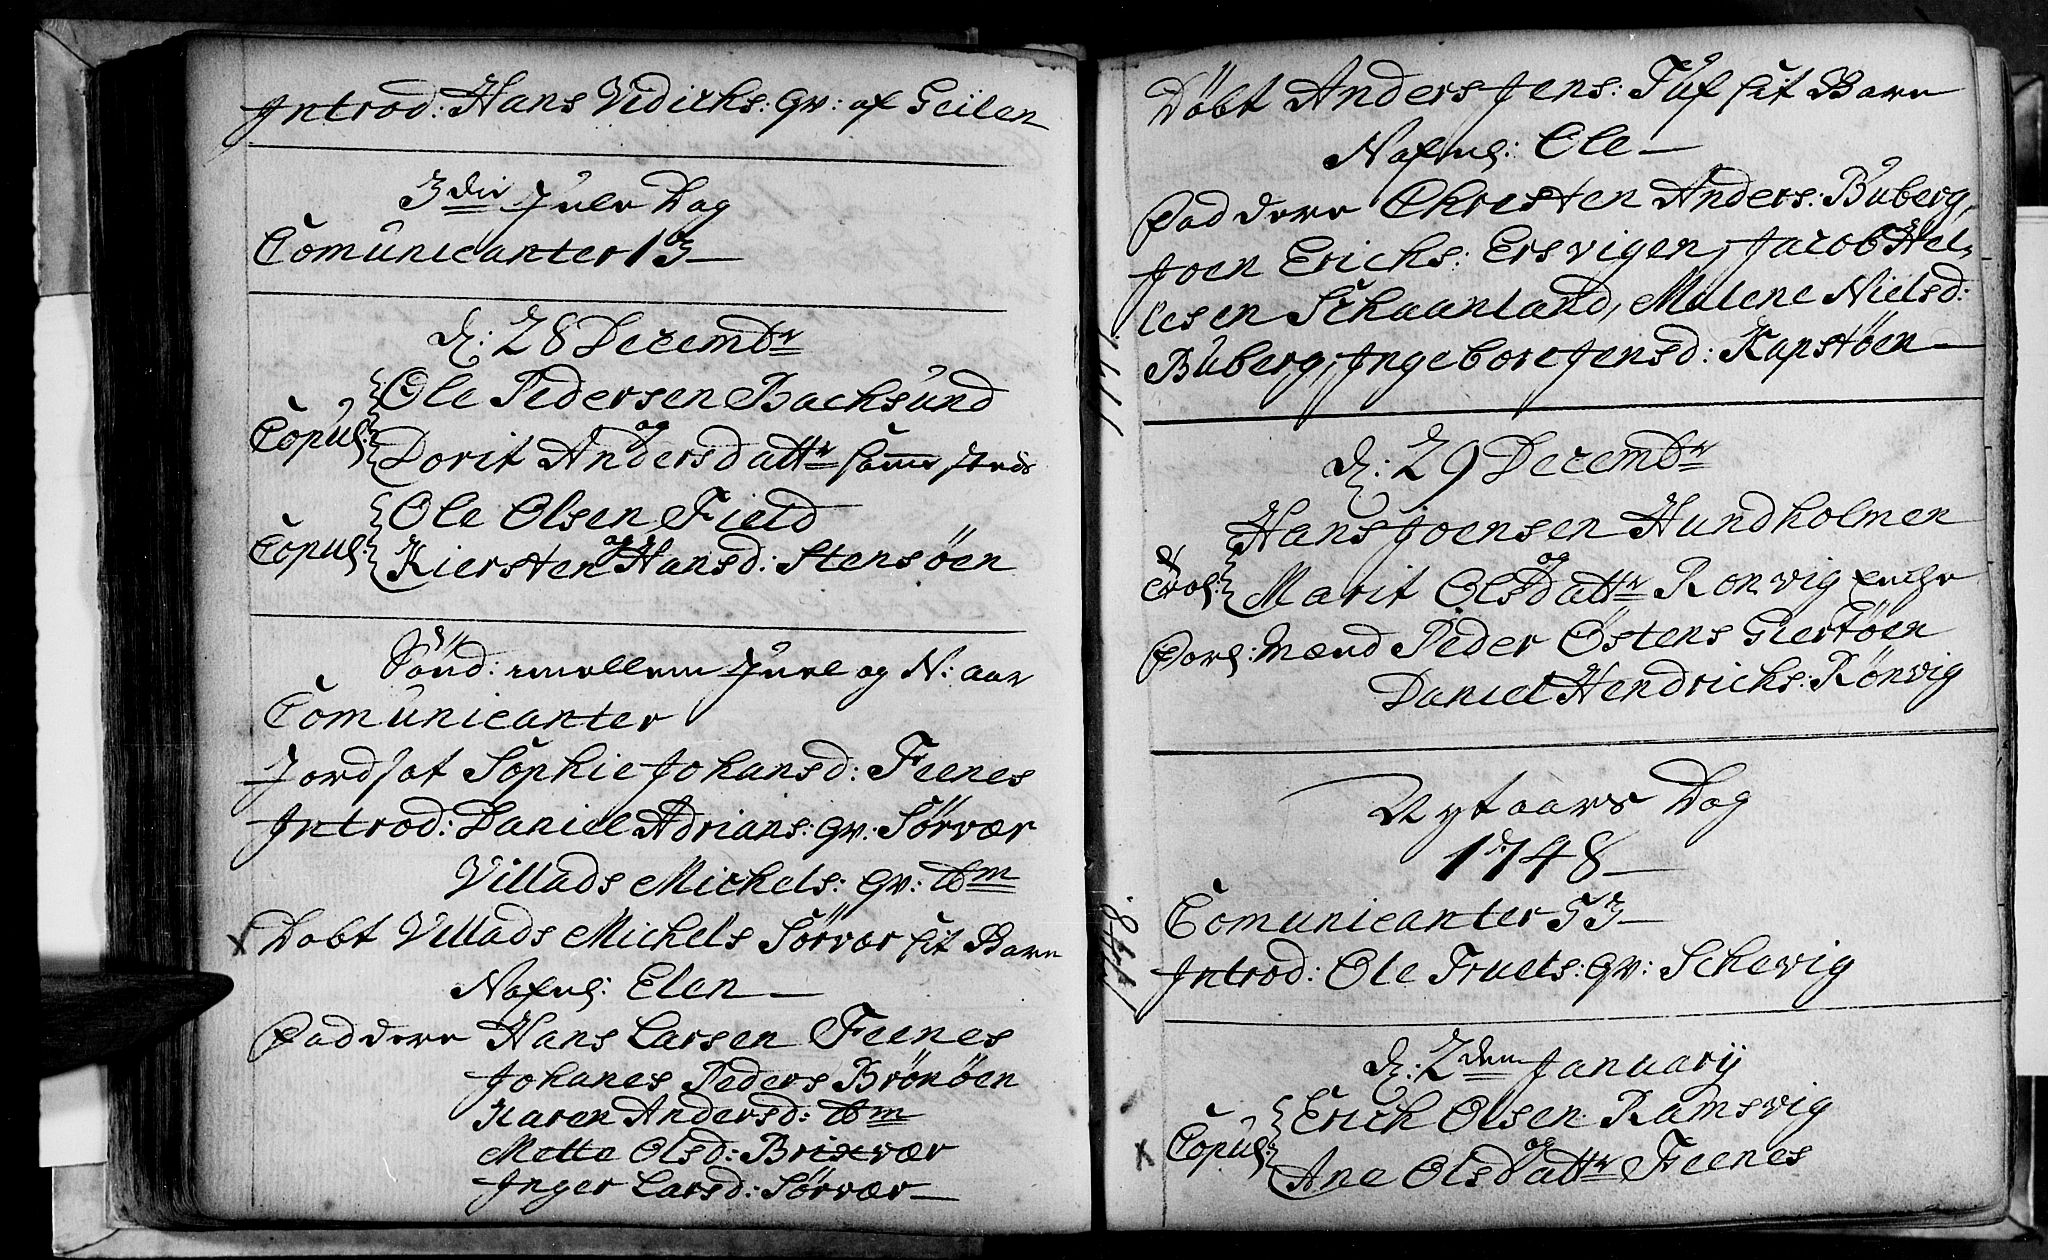 Introd: Hans Didichs: qv: af Geilen
3die Jule Dag
Comunicanter 13
d: 28 Decembr
Ole Pedersen Bachsund
Copul: og
Dorit Andersdattr samme steds
Ole Olsen Field
Copul: og
Kiersten Hansd: Stensöen
Sönd: imellem Juel og N: aar
Comunicanter
Jordsat Sophie Johansd: Feenes
Introd: Daniel Adrians: qv: Sörvær
Villads Michels: qv: ibm
x Döbt Villads Michels Sörvær sit Barn
Nafnl: Elen
Faddere Hans Larsen Feenes
Johanes Peders Brönöen
Karen Andersd: ibm
Mette Olsd: Brixvær
Inger Larsd: Sörvær
Döbt Anders Jens: Tuf sit Barn
Nafnl: Ole
Faddere Christen Anders: Buberg,
Joen Erichs: Ersvigen, Jacob Hel-
lesen Schaanland, Malene Nielsd:
Buberg, Ingebore Jensd: Kapstöen
1747.
d: 29 Decembr
Hans Joensen Hundholmen
Trol: og
Marit Olsdattr Ronvig Enche
Forl: Mænd Peder Östens Giertöen
Daniel Hendrichs: Rönvig
Nytaars Dag
1748
Comunicanter 53
1748.
Introd: Ole Truels: qv: Schevig
d: 2den January
Erich Olsen Ramsvig
x Copul: og
Ane Olsdattr Feenes